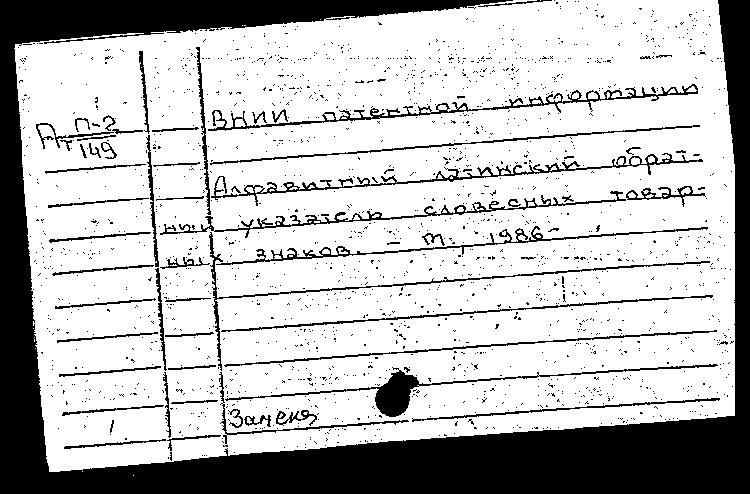 Пт П-2
149
ВНИИ патентной информации
Алфавитный латинский обрат-
ный указатель словесных товар-
ных знаков. - М., 1986-
Замена